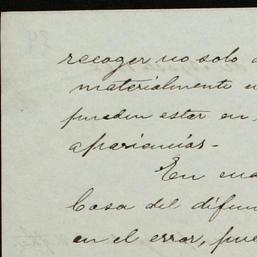 recoger no solo
materialmente
pueden estar en
apariencias-
En
Casa del difun
en el error, pue